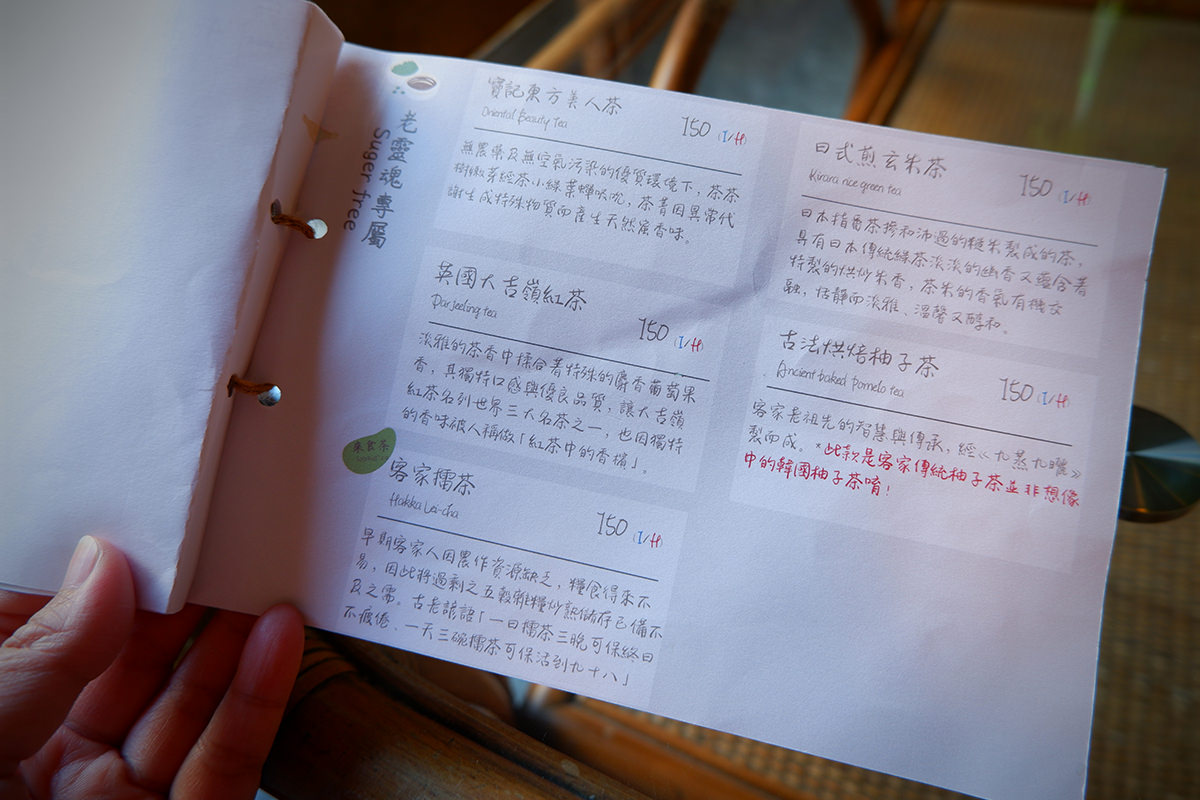 老靈魂專屬
Suger free
寶記東方美人茶
Oriental Beauty tea
150 (I/H)
無農藥及無空氣污染的優質環境下，茶茶
樹嫩芽經茶小綠葉蟬吸吮，茶菁因異常代
謝生成特殊物質而產生天然蜜香味。
英國大吉嶺紅茶
Darjeeling tea
150 (I/H)
淡雅的茶香中揉合著特殊的麝香葡萄果
香，其獨特口感與優良品質，讓大吉嶺
紅茶名列世界三大名茶之一，也因獨特
的香味被人稱做「紅茶中的香檳」。
來食茶
客家擂茶
Hakka Lei-cha
150 (I/H)
早期客家人因農作資源缺乏，糧食得來不
易，因此將過剩之五穀雜糧炒熟儲存已備不
及之需。古老諺語「一日擂茶三晚可保終日
不疲倦、一天三碗擂茶可保活到九十八」
日式煎玄米茶
Kirara rice green tea
150 (I/H)
日本指番茶摻和沛過的糙米製成的茶，
具有日本傳統綠茶淡淡的幽香又蘊含著
特製的烘炒米香，茶米的香氣有機交
融，恬靜而淡雅、溫馨又醇和。
古法烘焙柚子茶
Ancient baked Pomelo tea
150 (I/H)
客家老祖先的智慧與傳承，經《九蒸九曬》
製而成。*此款是客家傳統柚子茶並非想像
中的韓國柚子茶唷！